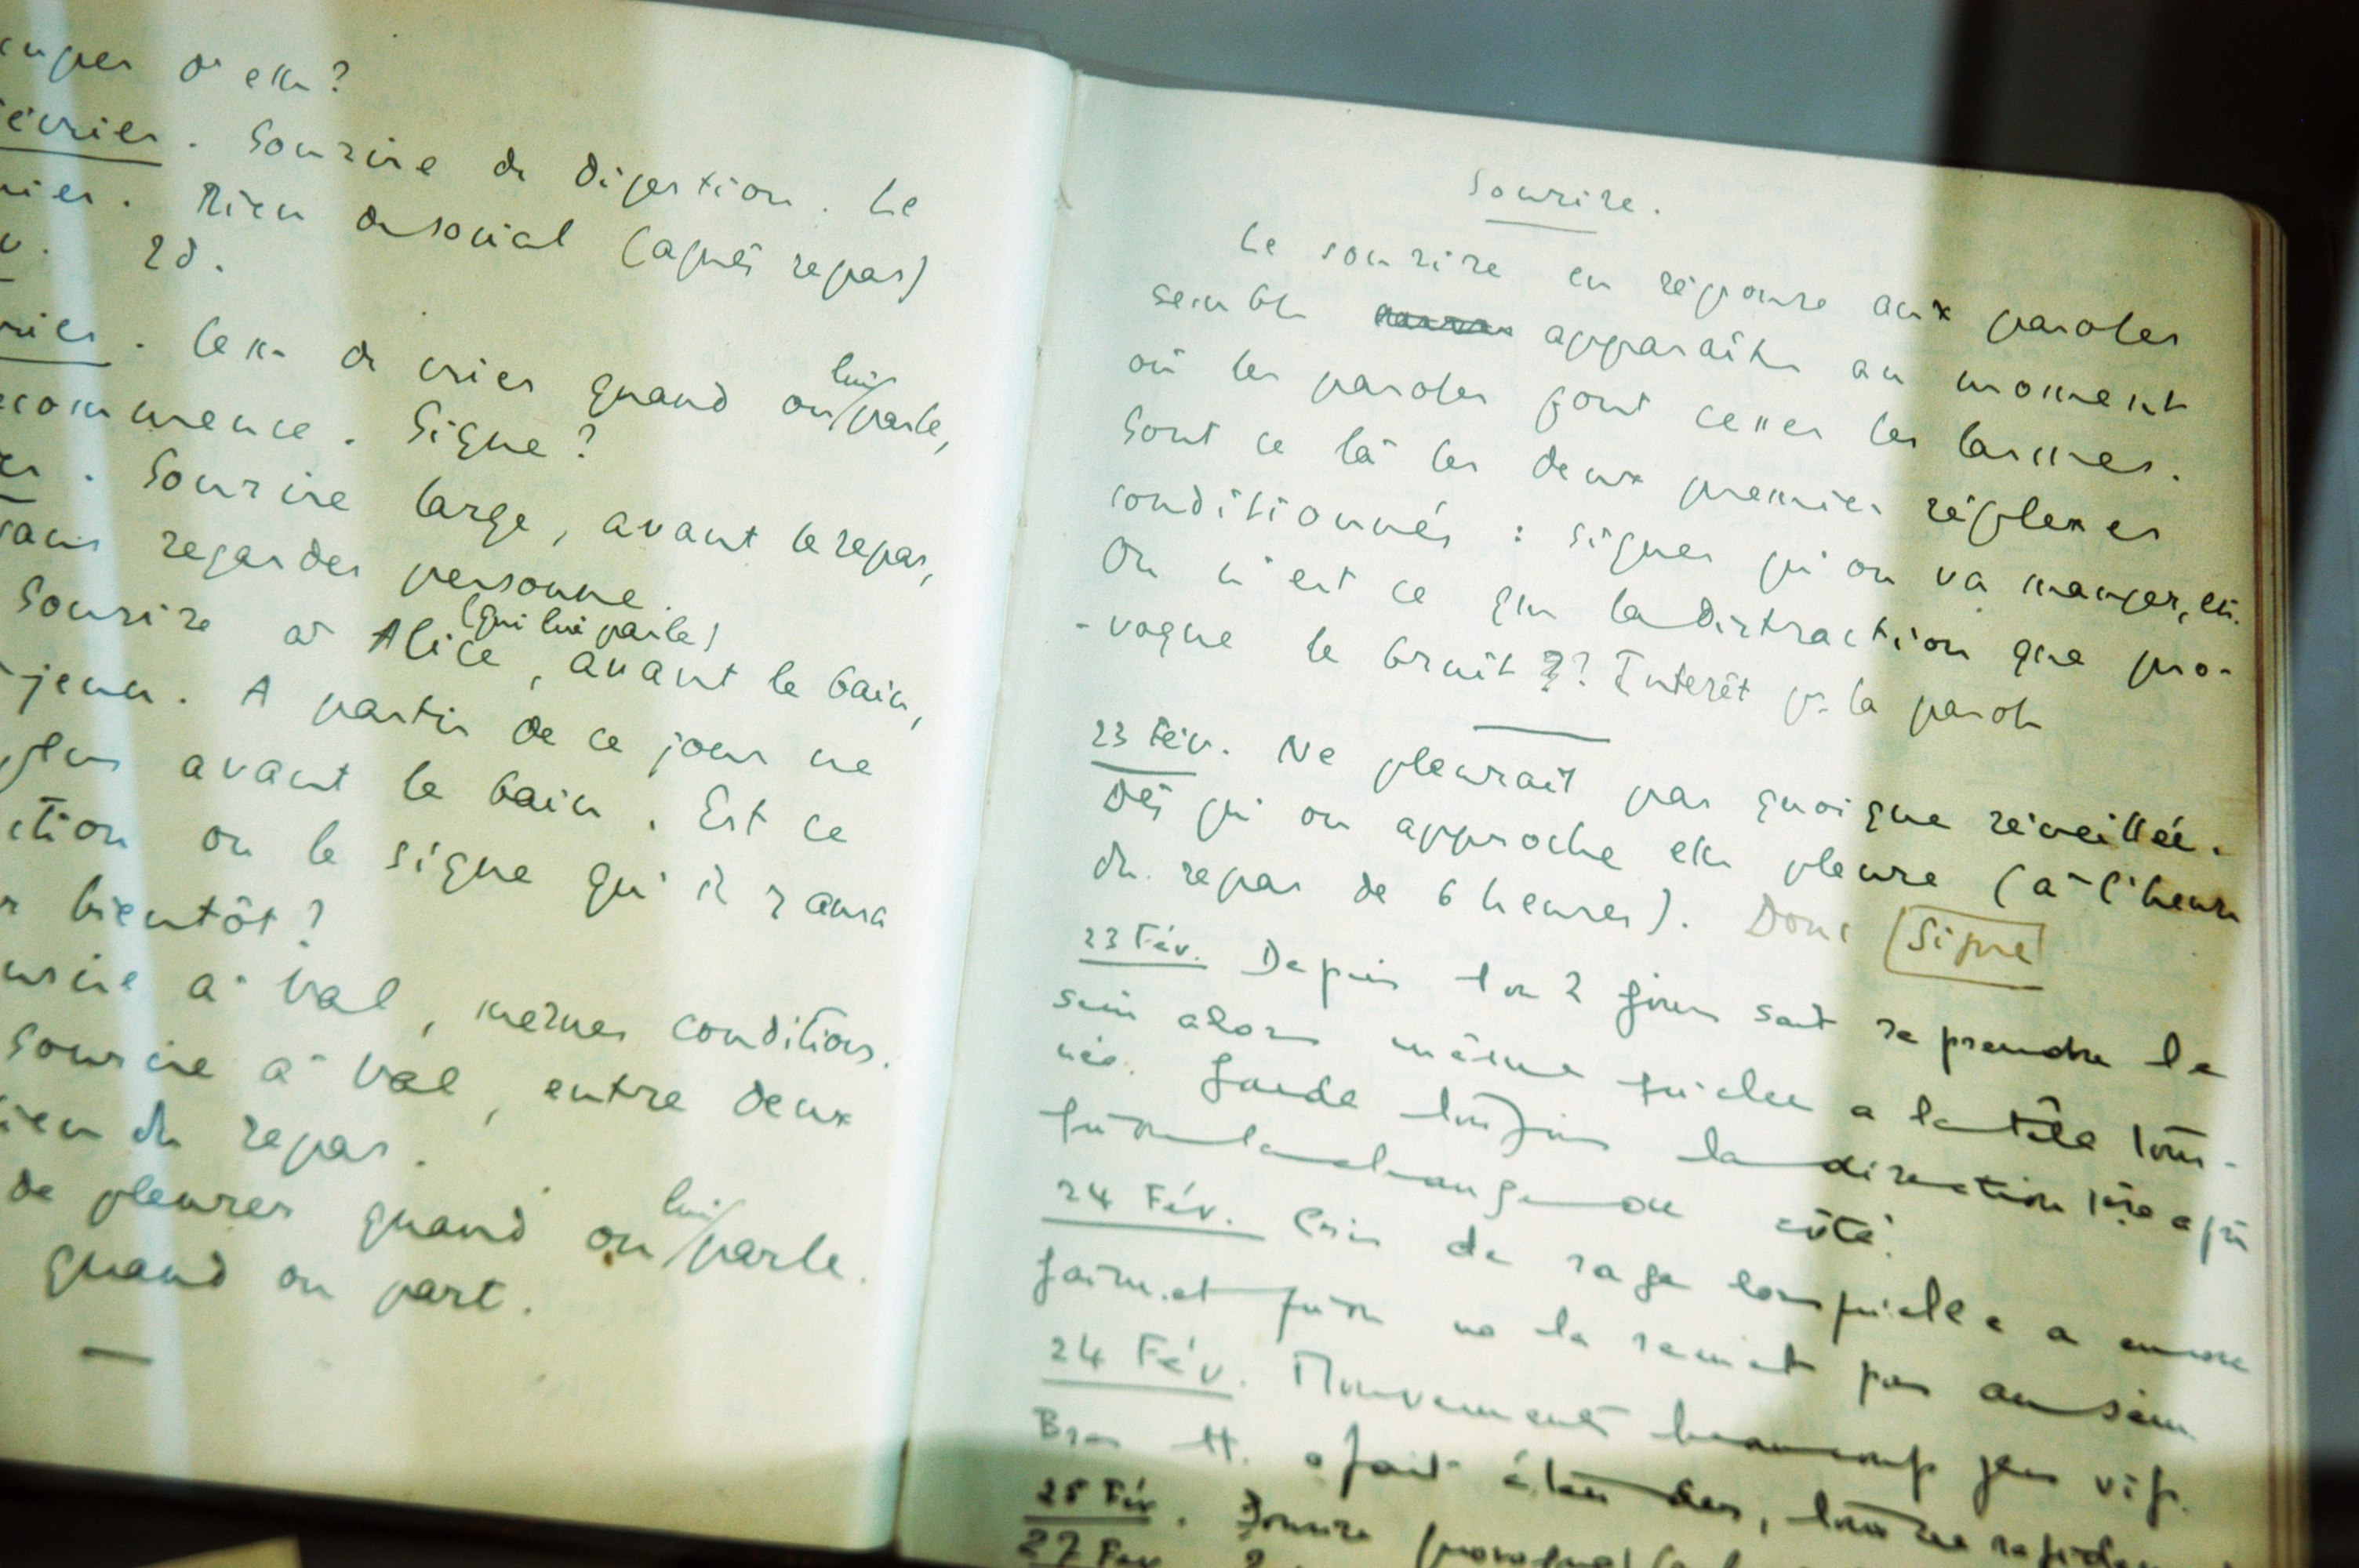 cuper d'elle ?
évrier. Sourire de digestion. Le
nier. Rien de social (après repas)
v. 2d.
rier. Cesse de crier quand on lui parle,
commence. Signe ?
er. Sourire large, avant le repas,
sans regarder personne.
Sourire à Alice (qui lui parle), avant le bain,
-jeun. A partir de ce jour ne
plus avant le bain. Est ce
ction ou le signe qu'il y aura
r bientôt ?
urire à Val, mêmes conditions.
Sourire à Val, entre deux
ien du repas.
de pleurer quand on lui parle.
quand on part.
Sourire.
Le sourire en réponse aux paroles
semble apparaître au moment
où les paroles font cesser les larmes.
Sont ce là les deux premiers réflexes
conditionnés : signes qu'on va manger, etc.
Ou n'est ce que la distraction que pro-
-voque le bruit ?? Interêt pr la parole
23 Fév. Ne pleurait pas quoique réveillée.
Dès qu'on approche elle pleure (à l'heure
du repas de 6 heures). Donc Signe
23 Fév. Depuis 1 ou 2 jours sait reprendre le
sein alors même qu'elle a la tête tour-
née. Garde toujours la direction même si
qu'on la change de côté.
24 Fév. Cris de rage lorsqu'elle a encore
faim et qu'on ne la remet pas au sein.
24 Fév. Mouvements beaucoup plus vifs.
Bras tt. à fait étendus,
25 Fév. Sourire
27 Fev